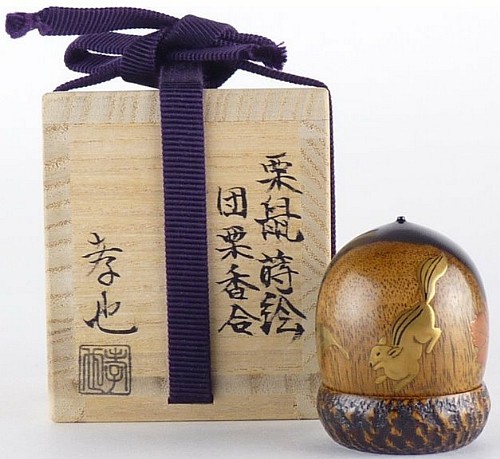 栗鼠蒔絵
団栗香合
孝也
孝也